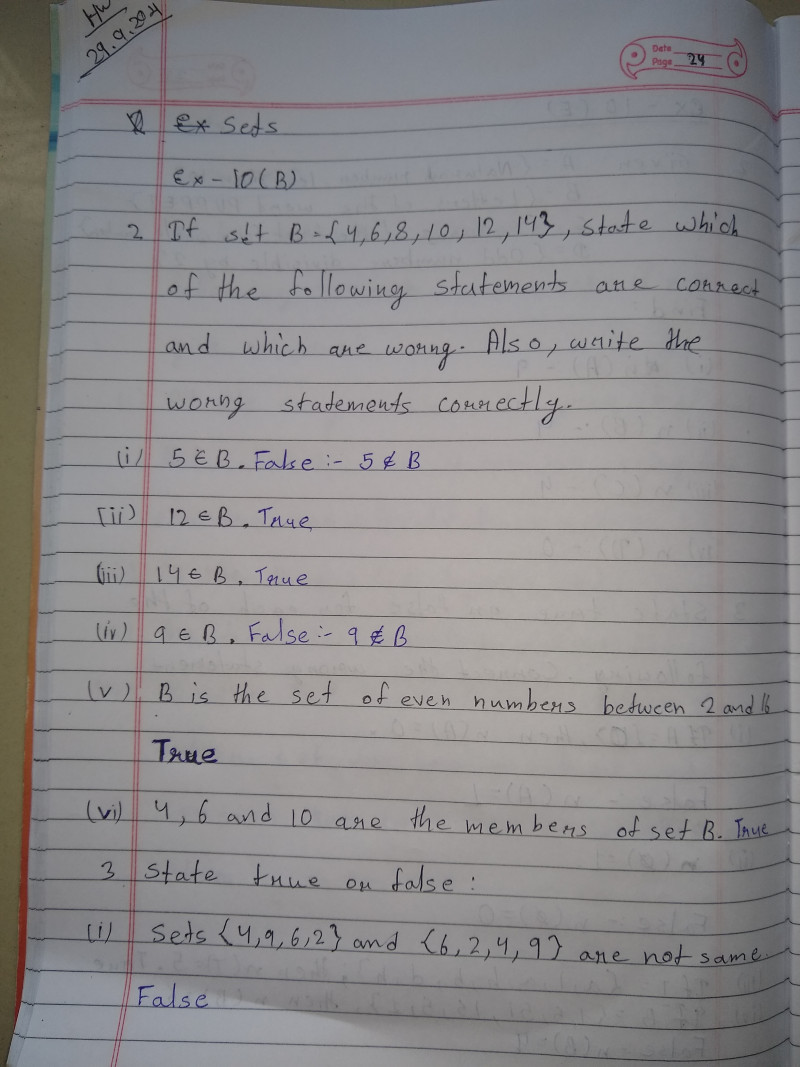 HW
29.9.2021
Date
Page 24
Ex Sets
Ex-10(B)
2 If set B={4,6,8,10,12,14}, state which
of the following statements are correct
and which are worng. Also, write the
worng statements correctly.
(i) 5 ∈ B. False :- 5 ∉ B
(ii) 12 ∈ B. True
(iii) 14 ∈ B. True
(iv) 9 ∈ B. False :- 9 ∉ B
(v) B is the set of even numbers between 2 and 16
True
(vi) 4, 6 and 10 are the members of set B. True
3 State true or false :
(i) Sets {4,9,6,2} and {6,2,4,9} are not same.
False